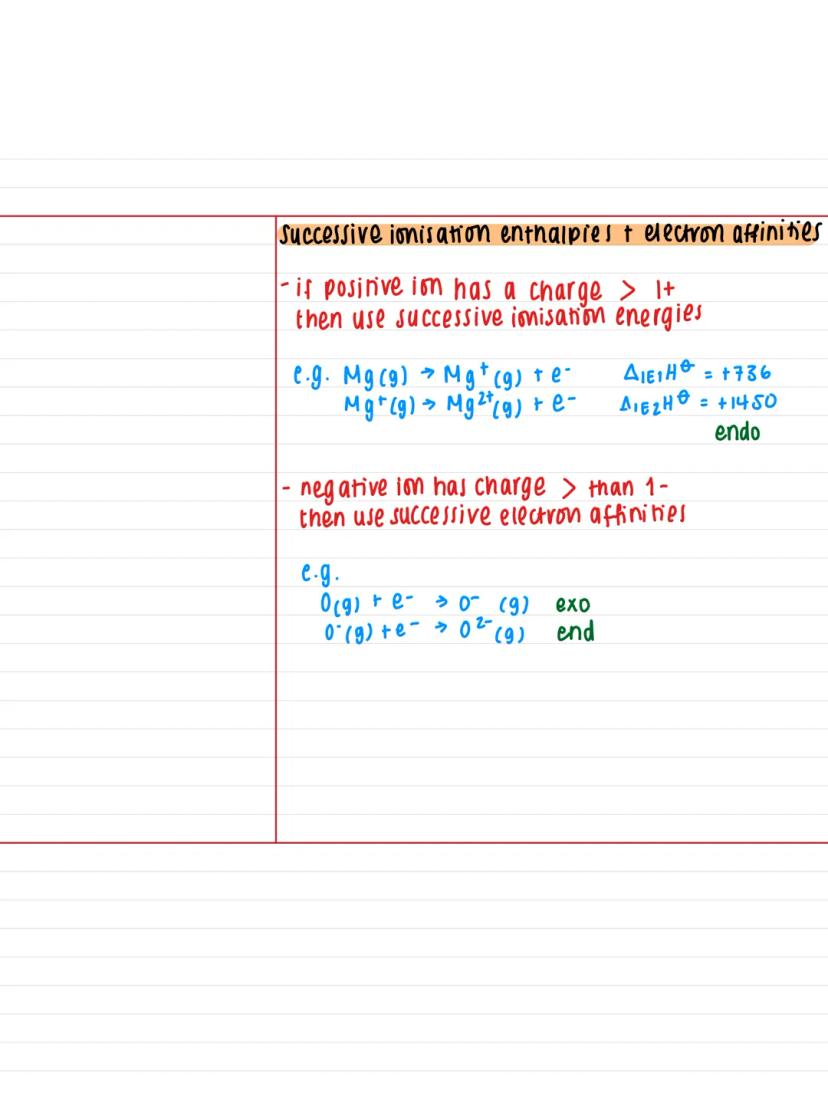 successive ionisation enthalpies + electron affinities
- if positive ion has a charge > 1+
then use successive ionisation energies
e.g. Mg(g) → Mg⁺(g) + e⁻ Δ_IE1 H^θ = +736
Mg⁺(g) → Mg²⁺(g) + e⁻ Δ_IE2 H^θ = +1450
endo
- negative ion has charge > than 1-
then use successive electron affinities
e.g.
O(g) + e⁻ → O⁻ (g) exo
O⁻(g) + e⁻ → O²⁻(g) end